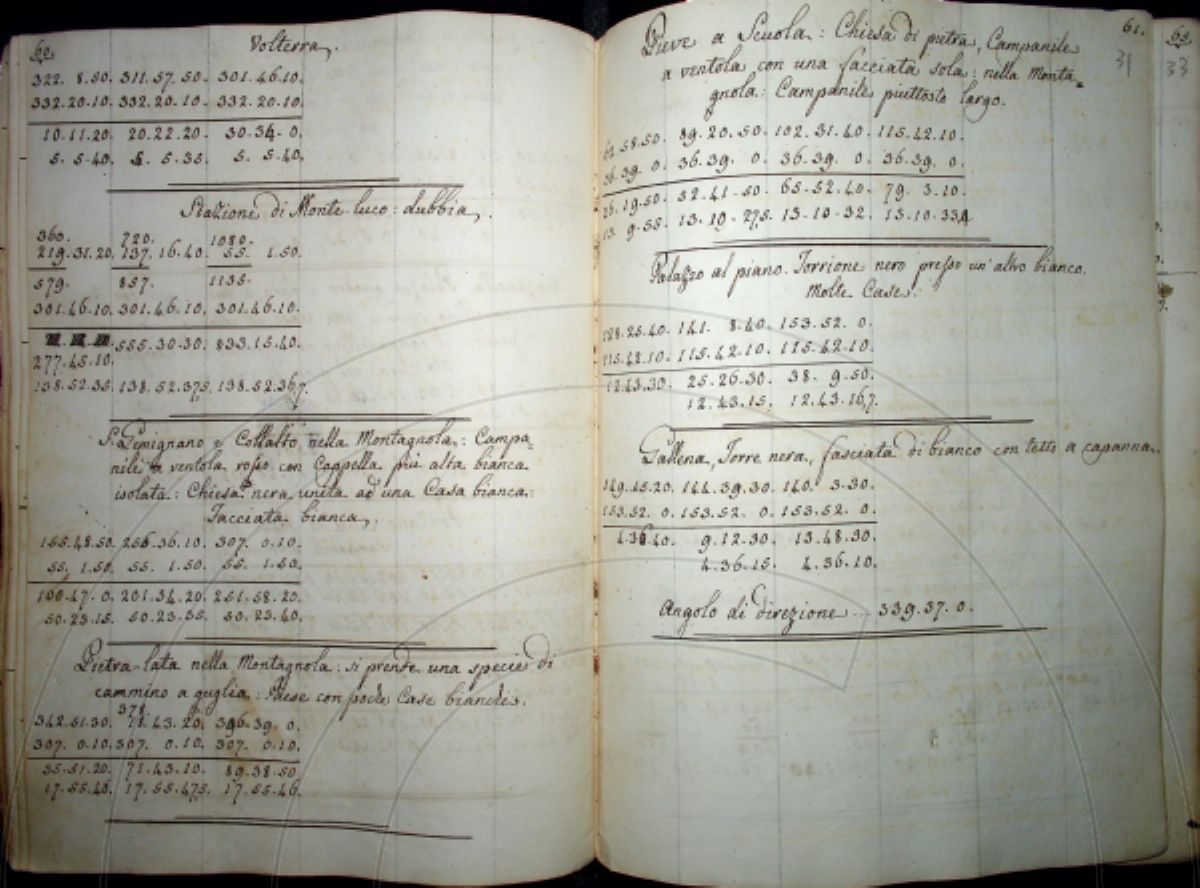 60.
Volterra.
322. 8.50. 311.57.50. 301.46.10.
332.20.10. 332.20.10. 332.20.10.
10.11.20. 20.22.20. 30.34. 0.
5. 5.40. 5. 5.35. 5. 5.40.
Stazione di Monte-luco: dubbia.
360. 720. 1080.
219.31.20. 137.16.40. 55. 1.50.
579. 857. 1135.
301.46.10. 301.46.10. 301.46.10.
555.30.30. 833.15.40.
277.45.10.
138.52.35. 138.52.37,5. 138.52.36,7.
S. Gemignano e Collalto, nella Montagnola: Campa-
nile a ventola rosso con Cappella più alta bianca
isolata: Chiesa nera unita ad una Casa bianca:
Facciata bianca.
155.48.50. 256.36.10. 307. 0.10.
55. 1.50. 55. 1.50. 55. 1.50.
100.47. 0. 201.34.20. 251.58.20.
50.23.15. 50.23.35. 50.23.40.
Pietra-lata nella Montagnola: si prende una specie di
cammino a guglia: Paese con poche Case bianche.
378.
342.51.30. 18.43.20. 396.39. 0.
307. 0.10. 307. 0.10. 307. 0.10.
35.51.20. 71.43.10. 89.38.50.
17.55.40. 17.55.47,5. 17.55.46.
61.
31
Pieve a Scuola: Chiesa di pietra, Campanile
a ventola con una facciata sola: nella Monta-
gnola: Campanile piuttosto largo.
62.58.50. 89.20.50. 102.31.40. 115.42.10.
36.39. 0. 36.39. 0. 36.39. 0. 36.39. 0.
26.19.50. 52.41.50. 65.52.40. 79. 3.10.
13. 9.55. 13.10.27,5. 13.10.32. 13.10.33,4.
Palazzo al piano. Torrione nero presso un'altro bianco.
Molte Case.
128.25.40. 141. 8.40. 153.52. 0.
115.42.10. 115.42.10. 115.42.10.
12.43.30. 25.26.30. 38. 9.50.
12.43.15. 12.43.16,7.
Gallena, Torre nera, fasciata di bianco con tetto a capanna.
149.15.20. 144.39.30. 140. 3.30.
153.52. 0. 153.52. 0. 153.52. 0.
4.36.40. 9.12.30. 13.48.30.
4.36.15. 4.36.10.
Angolo di direzione .... 339.37. 0.
33